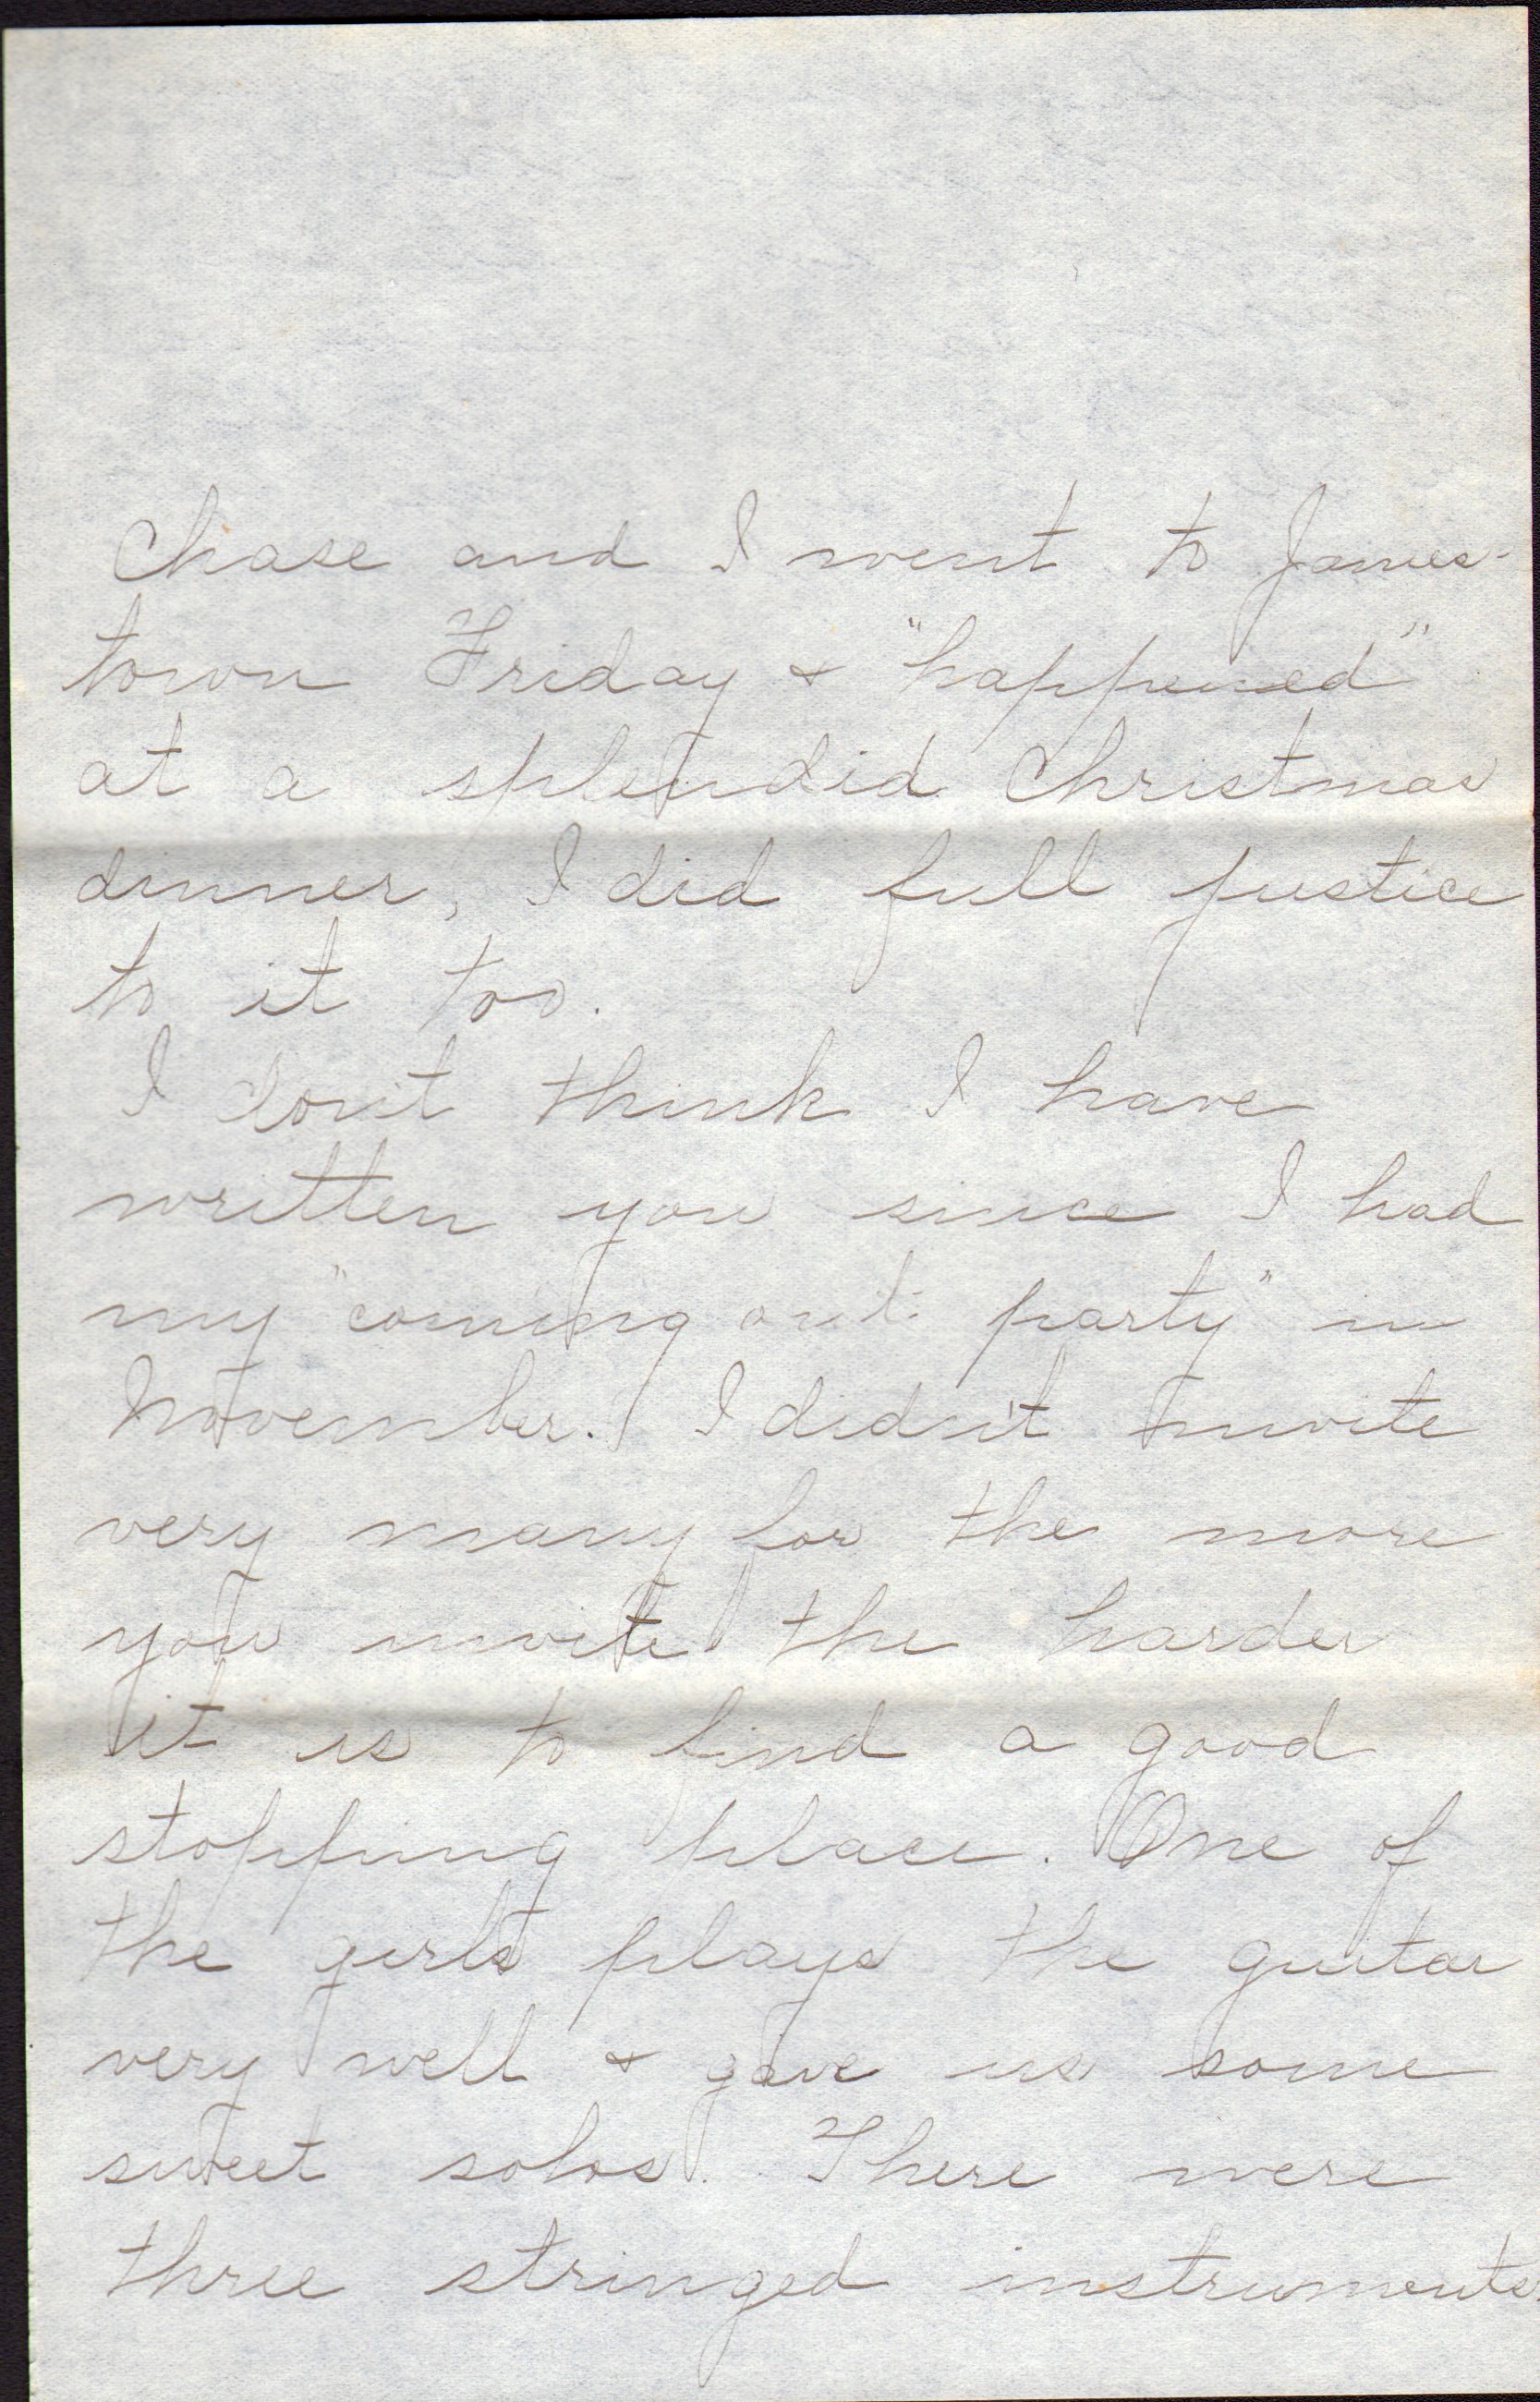 Chase and I went to James-
town Friday & "happened"
at a splendid Christmas
dinner, I did full justice
to it too.
I don't think I have
written you since I had
my "coming out party" in
November. I didn't invite
very many for the more
you invite the harder
it is to find a good
stopping place. One of
the girls plays the guitar
very well & gave us some
sweet solos. There were
three stringed instruments